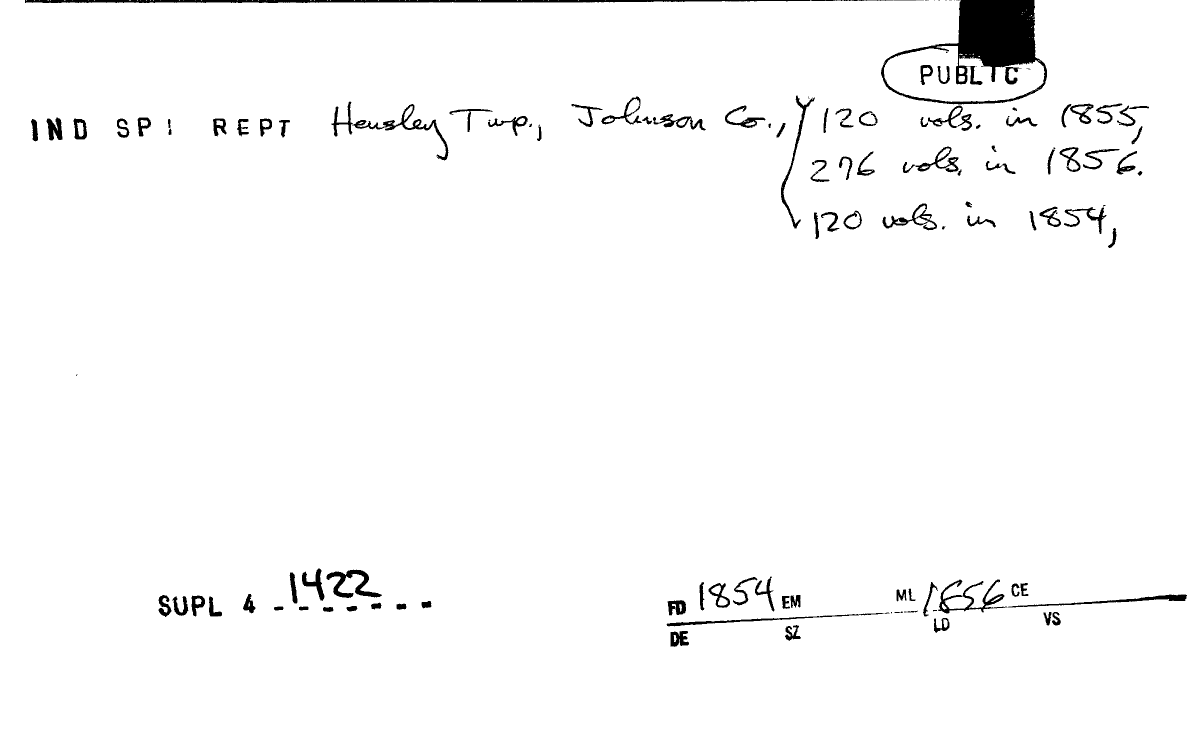 PUBLIC
IND SPI REPT Hensley Twp., Johnson Co., 120 vols. in 1855,
276 vols. in 1856.
120 vols. in 1854,
SUPL 4 1422
FD 1854 EM ML 1856 CE
DE SZ LD VS